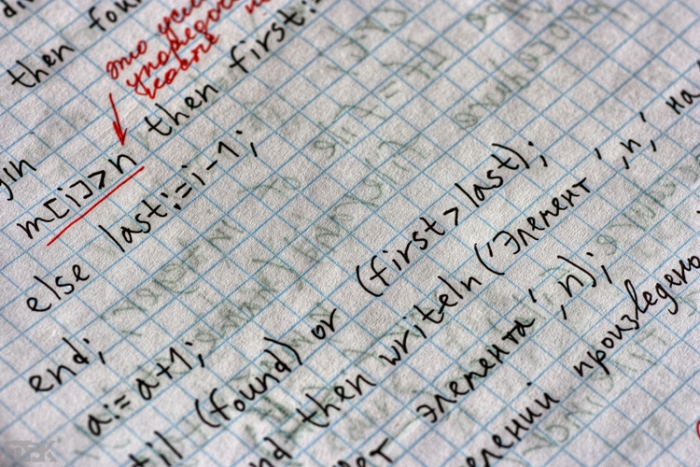 then foun
это усл
упорядоч
first:=
gin
m[i]>n then
else last:=i-1;
end;
a:=a+1;
til (found) or (first>last);
nd then writeln('Элемент ',n,' на
ет элемента',n);
елений произведено